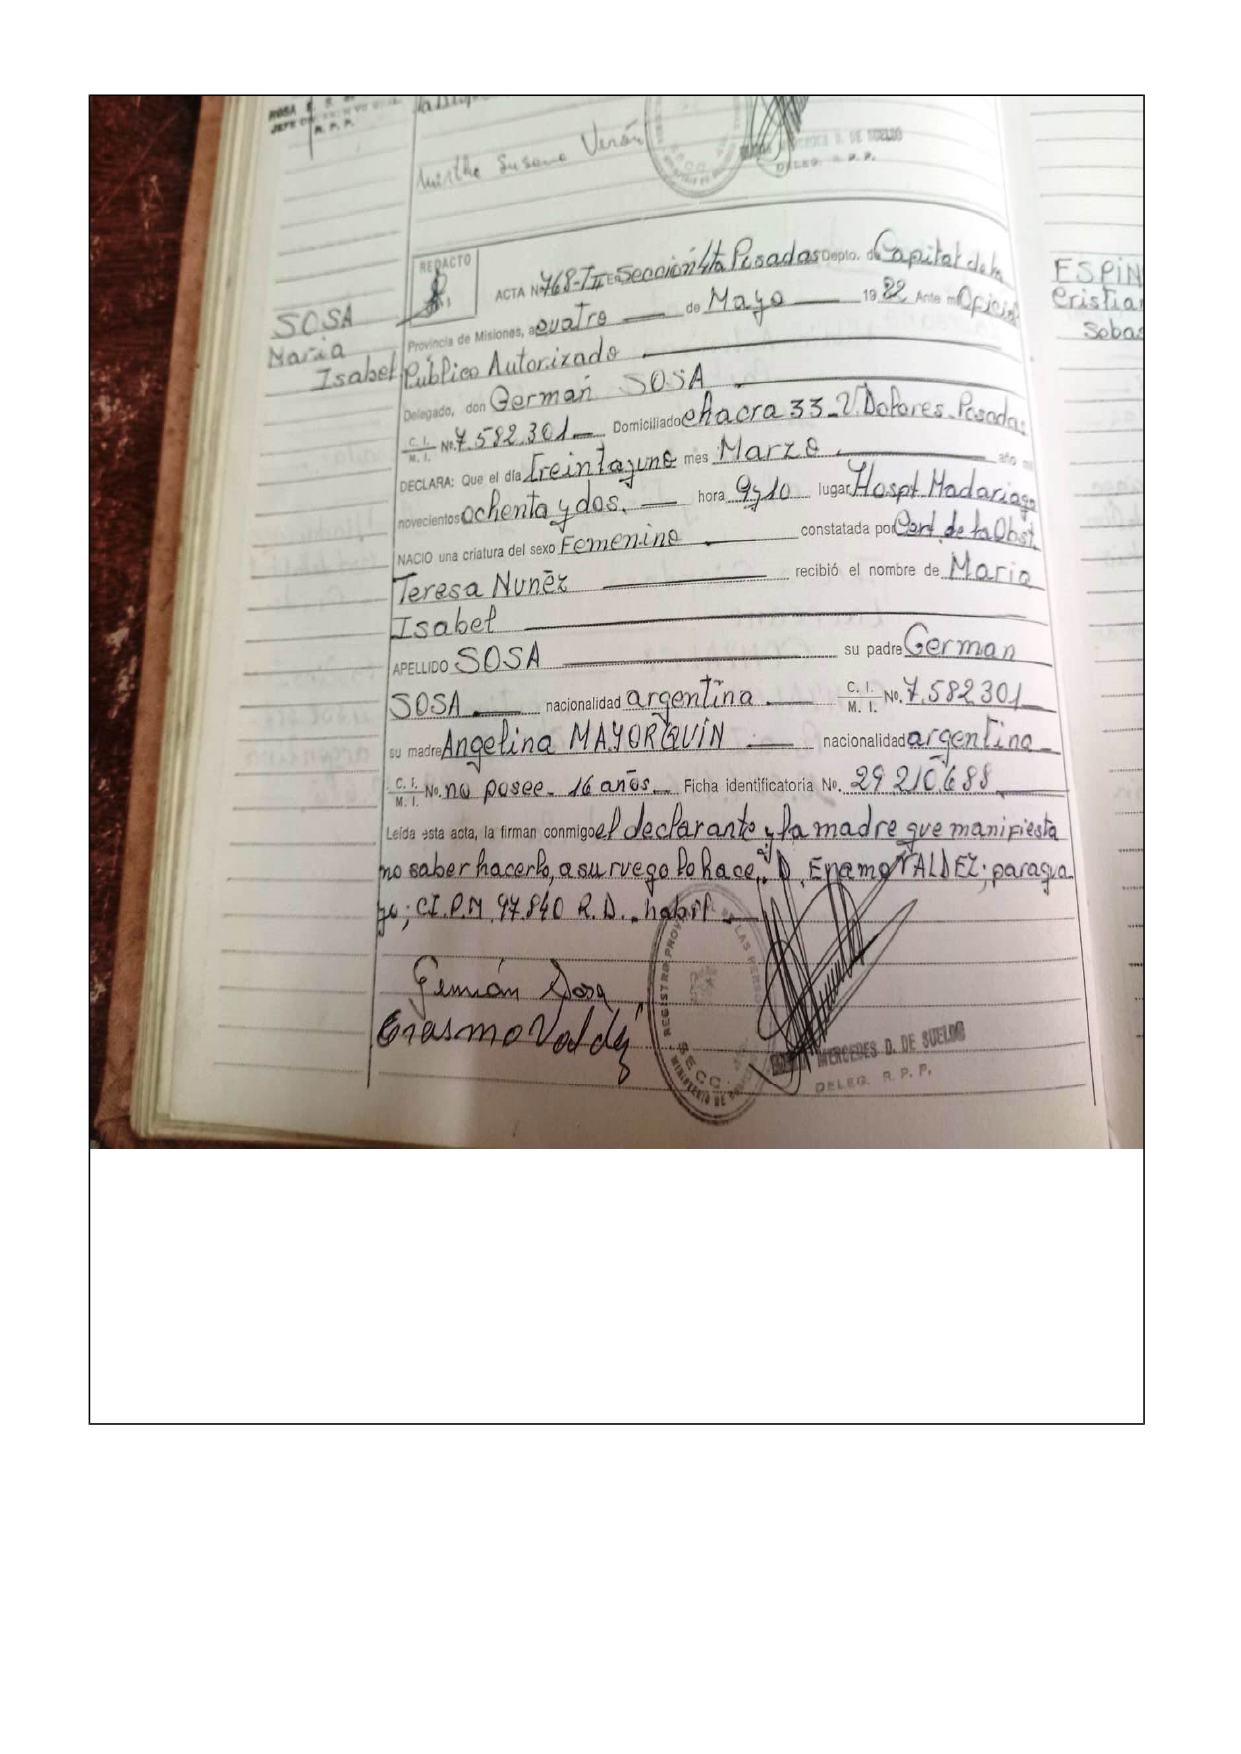 ROSA
JEFE
R. P. P.
Mirtha Susana Verón
D. DE SUELDO
DELEG. R. P. P.
REDACTO
ACTA Nº 768-T II En Sección 4ta Posadas Depto. de Capital de la
Provincia de Misiones, a cuatro de Mayo 1982 Ante mi Oficial
Público Autorizado
Delegado, don Germán SOSA
C. I.
M. I. No. 7.582.301 Domiciliado chacra 33-V. Dolores-Posadas
DECLARA: Que el día treintayuno mes Marzo año mil
novecientos ochenta y dos. hora 9y10 lugar Hospt Madariaga
NACIO una criatura del sexo Femenino constatada por Cert. de la Obst.
Teresa Nuñez recibió el nombre de Maria
Isabel
APELLIDO SOSA su padre German
SOSA nacionalidad argentina C. I.
M. I. No. 7.582.301
su madre Angelina MAYORQUIN nacionalidad argentina
C. I.
M. I. No. no posee. 16 años Ficha identificatoria No. 29.210.688
Leída esta acta, la firman conmigo el declarante y la madre que manifiesta
no saber hacerlo, a su ruego lo hace, D. VALDEZ; paragua
yo; C.I.P.M. 97.840 R.D. habil
Germán Sosa
Erasmo Valdéz
REGISTRO PROVINCIAL DE LAS PERSO
SECC.
MINISTERIO DE
MERCEDES D. DE SUELDO
DELEG. R. P. P.
SOSA
Maria
Isabel
ESPIN
Cristia
Sebas